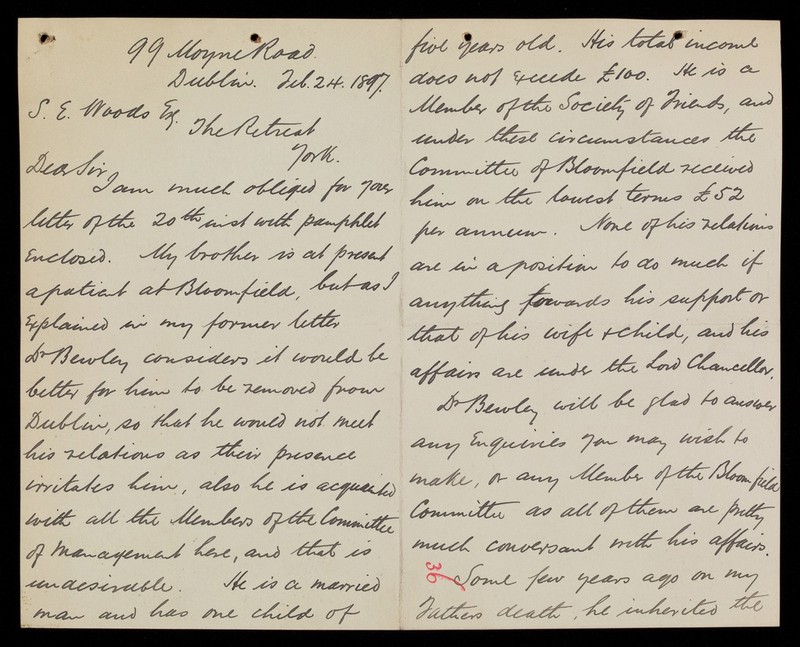 99 Moyne Road.
Dublin. Feb. 24. 1897.
S. E. Woods Esq.
The Retreat
York.
Dear Sir
I am much obliged for your
letter of the 20th inst with pamphlet
enclosed. My brother is at present
a patient at Bloomfield, but as I
explained in my former letter
Dr Bewley considers it would be
better for him to be removed from
Dublin, so that he would not meet
his relations as their presence
irritates him, also he is acquainted
with all the Members of the Committee
of Management here, and that is
undesirable. He is a married
man and has one child of
five years old. His total income
does not exceede £100. He is a
Member of the Society of Friends, and
under these circumstances the
Committee of Bloomfield received
him on the lowest terms £52
per annum. None of his relations
are in a position to do much if
anything towards his support or
that of his wife & child, and his
affairs are under the Lord Chancellor.
Dr Bewley will be glad to answer
any Enquiries you may wish to
make, or any Member of the Bloomfield
Committee as all of them are pretty
much conversant with his affairs.
36
Some few years ago on my
Fathers death, he inherited the